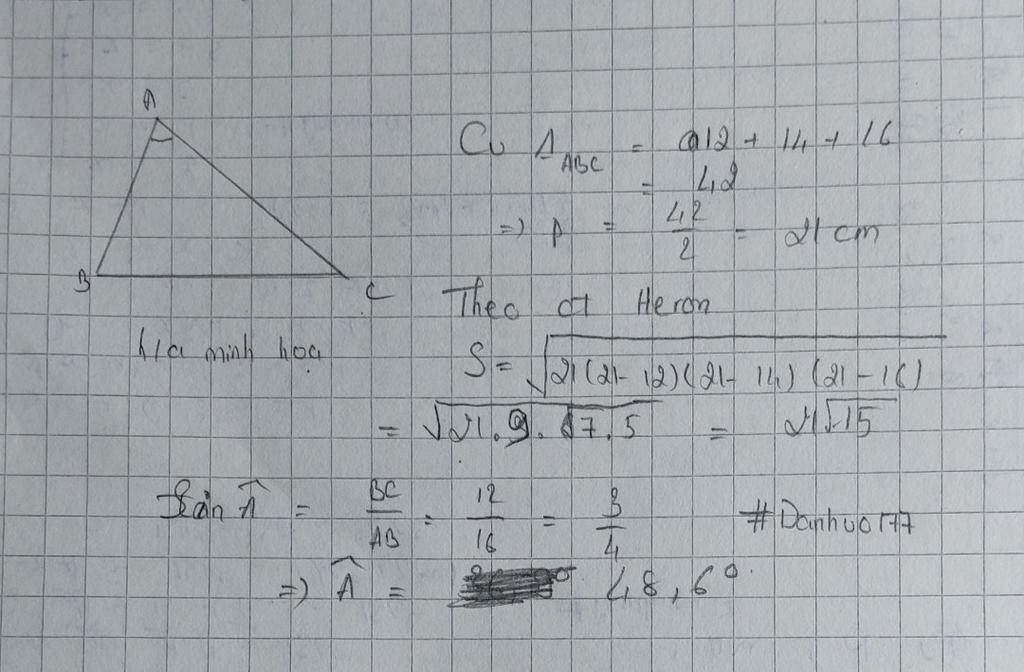 A
B
C
h/a minh họa
Cv Δ ABC = 12 + 14 + 16
= 42
=> p = 42/2 = 21 cm
Theo ct Heron
S = √21(21-12)(21-14)(21-16)
= √21.9.7.5 = 21√15
 = BC/AB = 12/16 = 3/4
#Danhvo177
=> Â = 48,6°